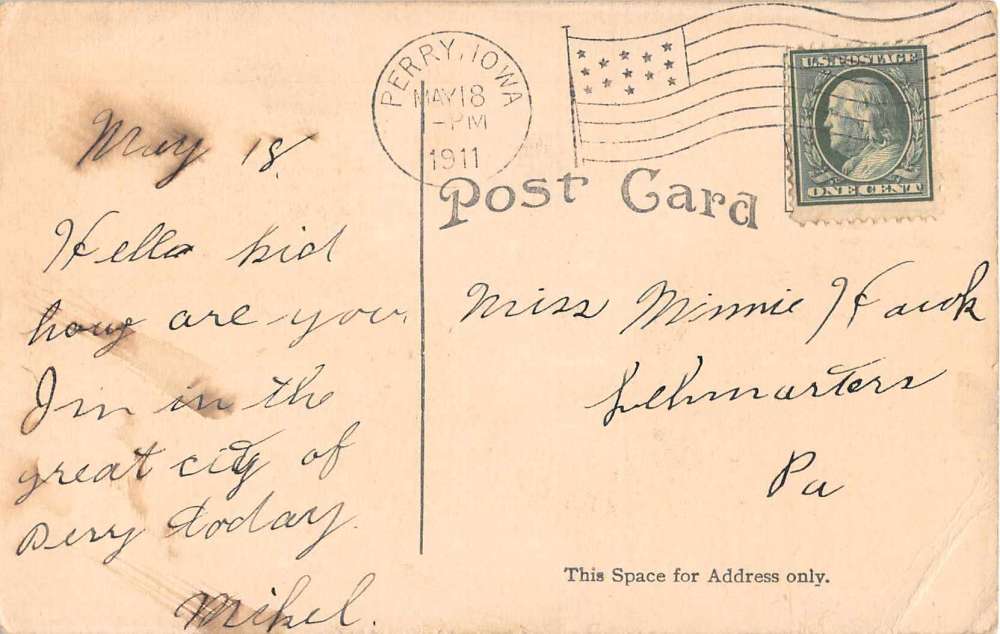 PERRY, IOWA
MAY 18
-PM
1911
U.S. POSTAGE
ONE CENT
Post Card
May 18
Hello kid
how are you
I'm in the
great city of
Perry today.
Mikel.
Miss Minnie Hawk
Pa
This Space for Address only.